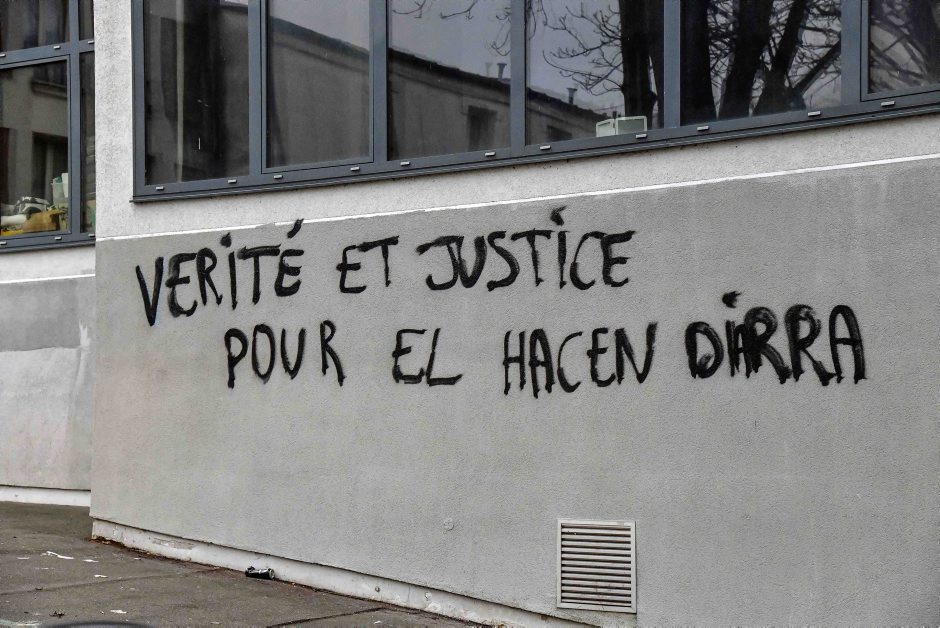 VERITÉ ET JUSTICE
POUR EL HACEN DIARRA